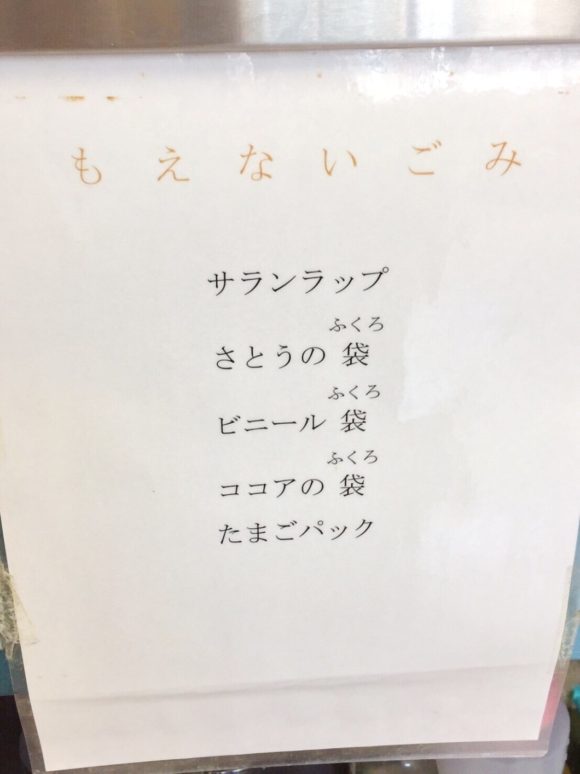 もえないごみ
サランラップ
ふくろ
さとうの 袋
ふくろ
ビニール 袋
ふくろ
ココアの 袋
たまごパック